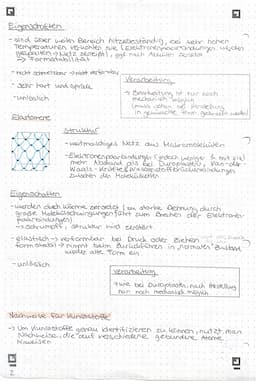 Eigenschaften
- sind über weiten Bereich hitzebeständig, bei sehr hohen
Temperaturen verkohlen sie (Elektronenpaarbindungen werden
gespalten → Netz zerreißt), ggf. nach
→ Formstabilität
- nicht schmelzbar → nicht verformbar
- sehr hart und spröde
- unlöslich
Verarbeitung
→ Bearbeitung ist nur noch
mechanisch möglich
(muss schon bei Herstellung
in gewünschte Form gebracht werden)
Elastomere
Struktur
- weitmaschiges Netz aus Makromolekülen
- Elektronenpaarbindungen (jedoch weniger & mit viel
mehr Abstand als bei Duroplasten), Van-der-
Waals-Kräfte & Wasserstoffbrückenbindungen
zwischen den Molekülketten
Eigenschaften
- werden durch Wärme zersetzt (zu starke Dehnung durch
große Molekülschwingungen führt zum Brechen der Elektronen-
paarbindungen)
→ schrumpft, Struktur wird zerstört
- elastisch → verformbar bei Druck oder Ziehen
formstabil → nimmt beim Zurückführen in "normalen" Zustand
wieder alte Form ein
- unlöslich
Verarbeitung
→ wie bei Duroplasten, nach Herstellung
nur noch mechanisch möglich
Nachweise für Kunststoffe
→ Um Kunststoffe genau identifizieren zu können, nutzt man
Nachweise, die auf verschiedene gebundene Atome
hinweisen